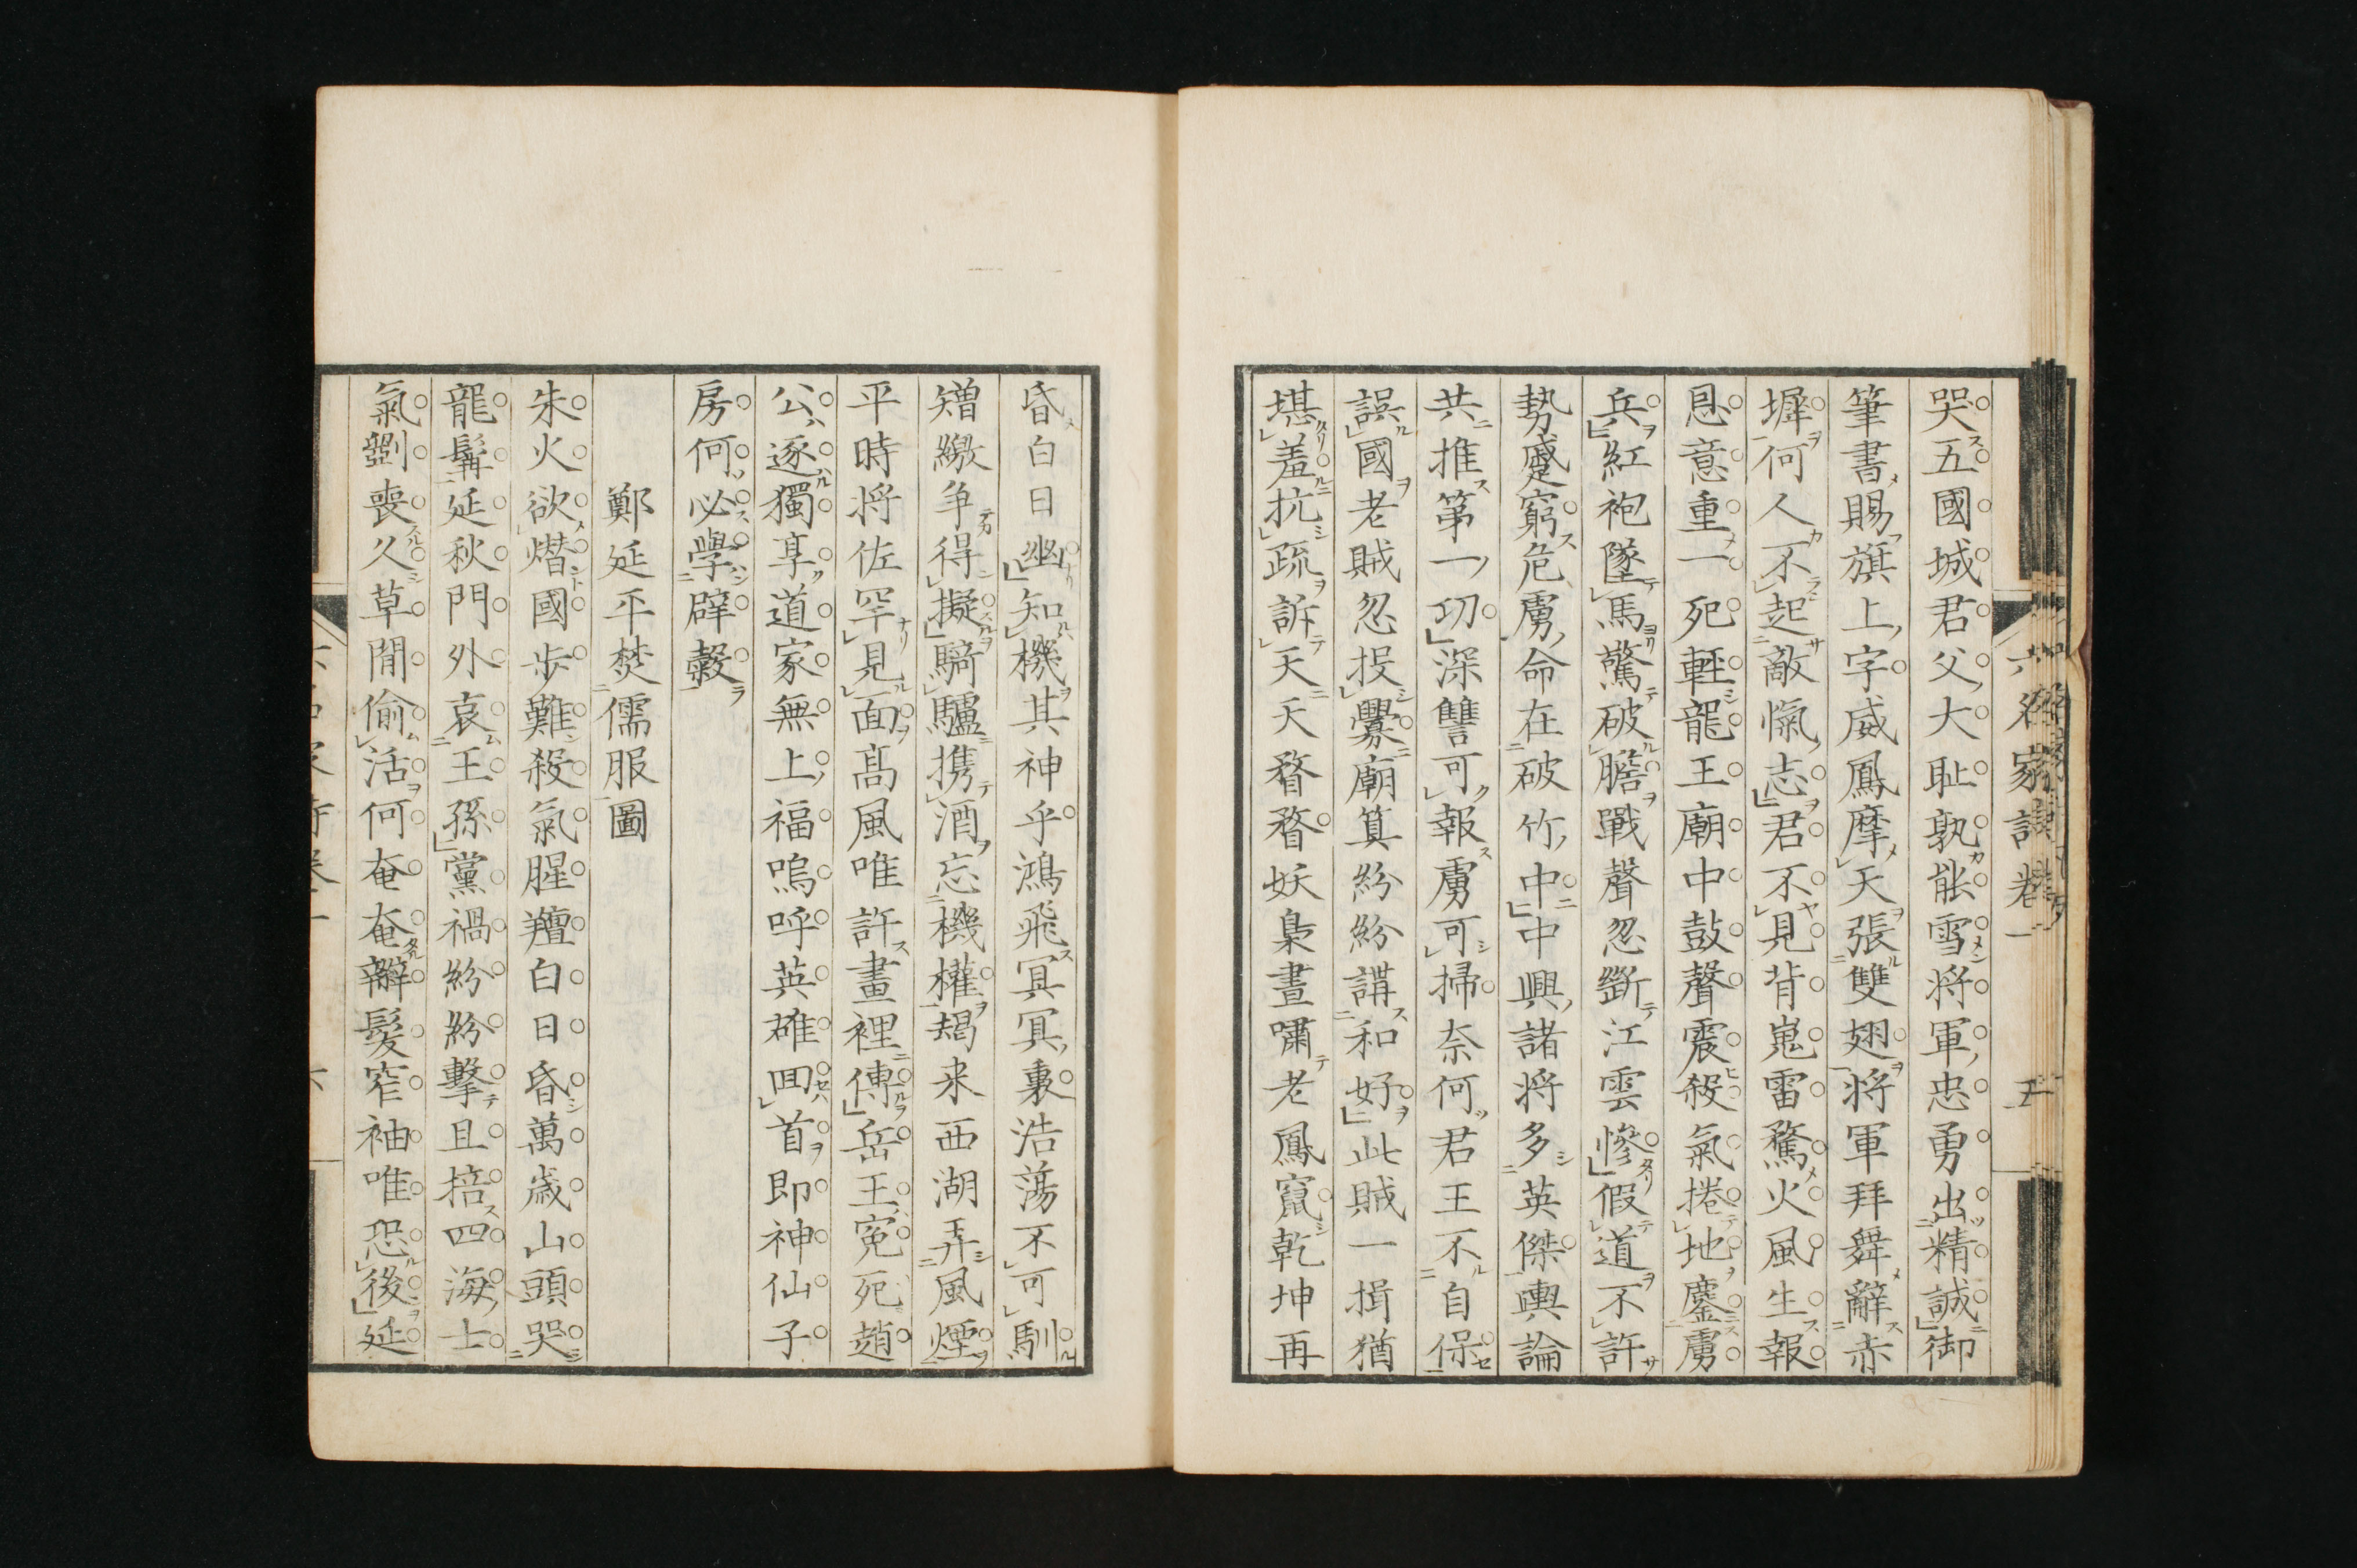 六名家詩卷一 五
哭五國城君父大耻孰能雪将軍忠勇出精誠御
筆書賜旗上字威鳳摩天張雙翅将軍拜舞辭赤
墀何人不起敵愾志君不見背嵬雷騖火風生報
恩意重一死輕龍王廟中鼓聲震殺氣捲地鏖虜
兵紅袍墜馬驚破膽戰聲忽斷江雲慘假道不許
勢蹙窮危虜命在破竹中中興諸将多英傑輿論
共推第一功深讐可報虜可掃奈何君王不自保
誤國老賊忍投釁廟算紛紛講和好此賊一揖猶
堪羞抗疏訴天天瞀瞀妖梟晝嘯老鳳竄乾坤再
昏白日幽知機其神乎鴻飛冥冥裏浩蕩不可馴
矰繳争得擬騎驢携酒忘機權朅来西湖弄風煙
平時将佐罕見面高風唯許畫裡傳岳王冤死趙
公逐獨享道家無上福嗚呼英雄囬首即神仙子
房何必學辟穀
鄭延平焚儒服圖
朱火欲熸國步難殺氣腥羶白日昏萬歳山頭哭
龍髯延秋門外哀王孫黨禍紛紛擊且掊四海士
氣劉喪久草間偷活何奄奄辮髮窄袖唯恐後延